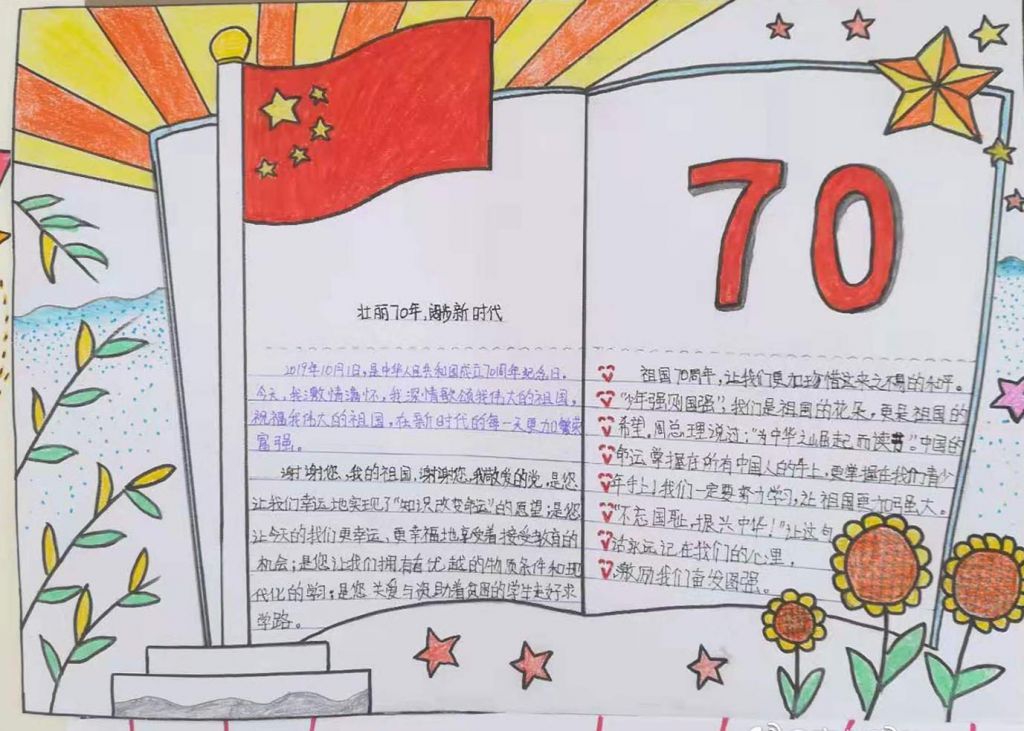 70
壮丽70年,阔步新时代
2019年10月1日,是中华人民共和国成立70周年纪念日。
今天,我激情满怀,我深情歌颂我伟大的祖国,
祝福我伟大的祖国,在新时代的每一天更加繁荣
富强。
谢谢您,我的祖国,谢谢您,我敬爱的党,是您
让我们幸运地实现了“知识改变命运”的愿望;是您
让今天的我们更幸运、更幸福地享受着接受教育的
机会;是您让我们拥有着优越的物质条件和现
代化的学习;是您关爱与资助着贫困的学生走好求
学路。
祖国70周年,让我们更加珍惜这来之不易的和平。
“少年强则国强”,我们是祖国的花朵,更是祖国的
希望。周总理说过:“为中华之崛起而读书。”中国的
命运掌握在所有中国人的手上,更掌握在我们青少
年手上!我们一定要努力学习,让祖国更加强大。
“不忘国耻,振兴中华!”让这句
话永远记在我们的心里,
激励我们奋发图强。